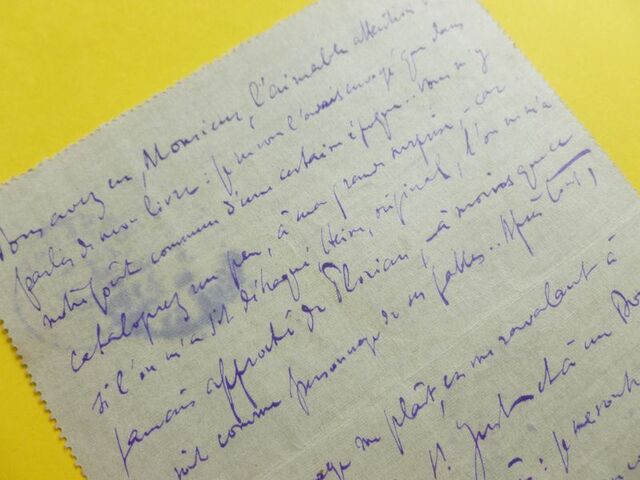 Vous avez eu, Monsieur, l'aimable attention
parler de mon livre : je ne vous l'avais envoyé que dans
notre goût commun d'une certaine époque... Vous m'y
cataloguez un peu, à ma grande surprise, – car
si l'on m'a dit détraqué, original, l'on ne m'a
jamais approché de Florian, – à moins que ce
soit comme personnage de ses fables... Après tout,
me plaît, en me ravalant à
St Just et à un
: je me